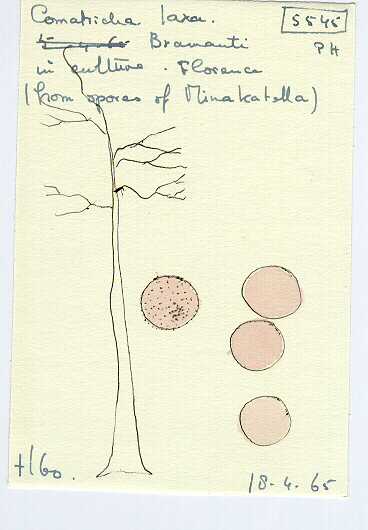 Comatricha laxa.
5545
Bramanti
PH
in culture. Florence
(from spores of Minakatella)
+160.
18-4.65